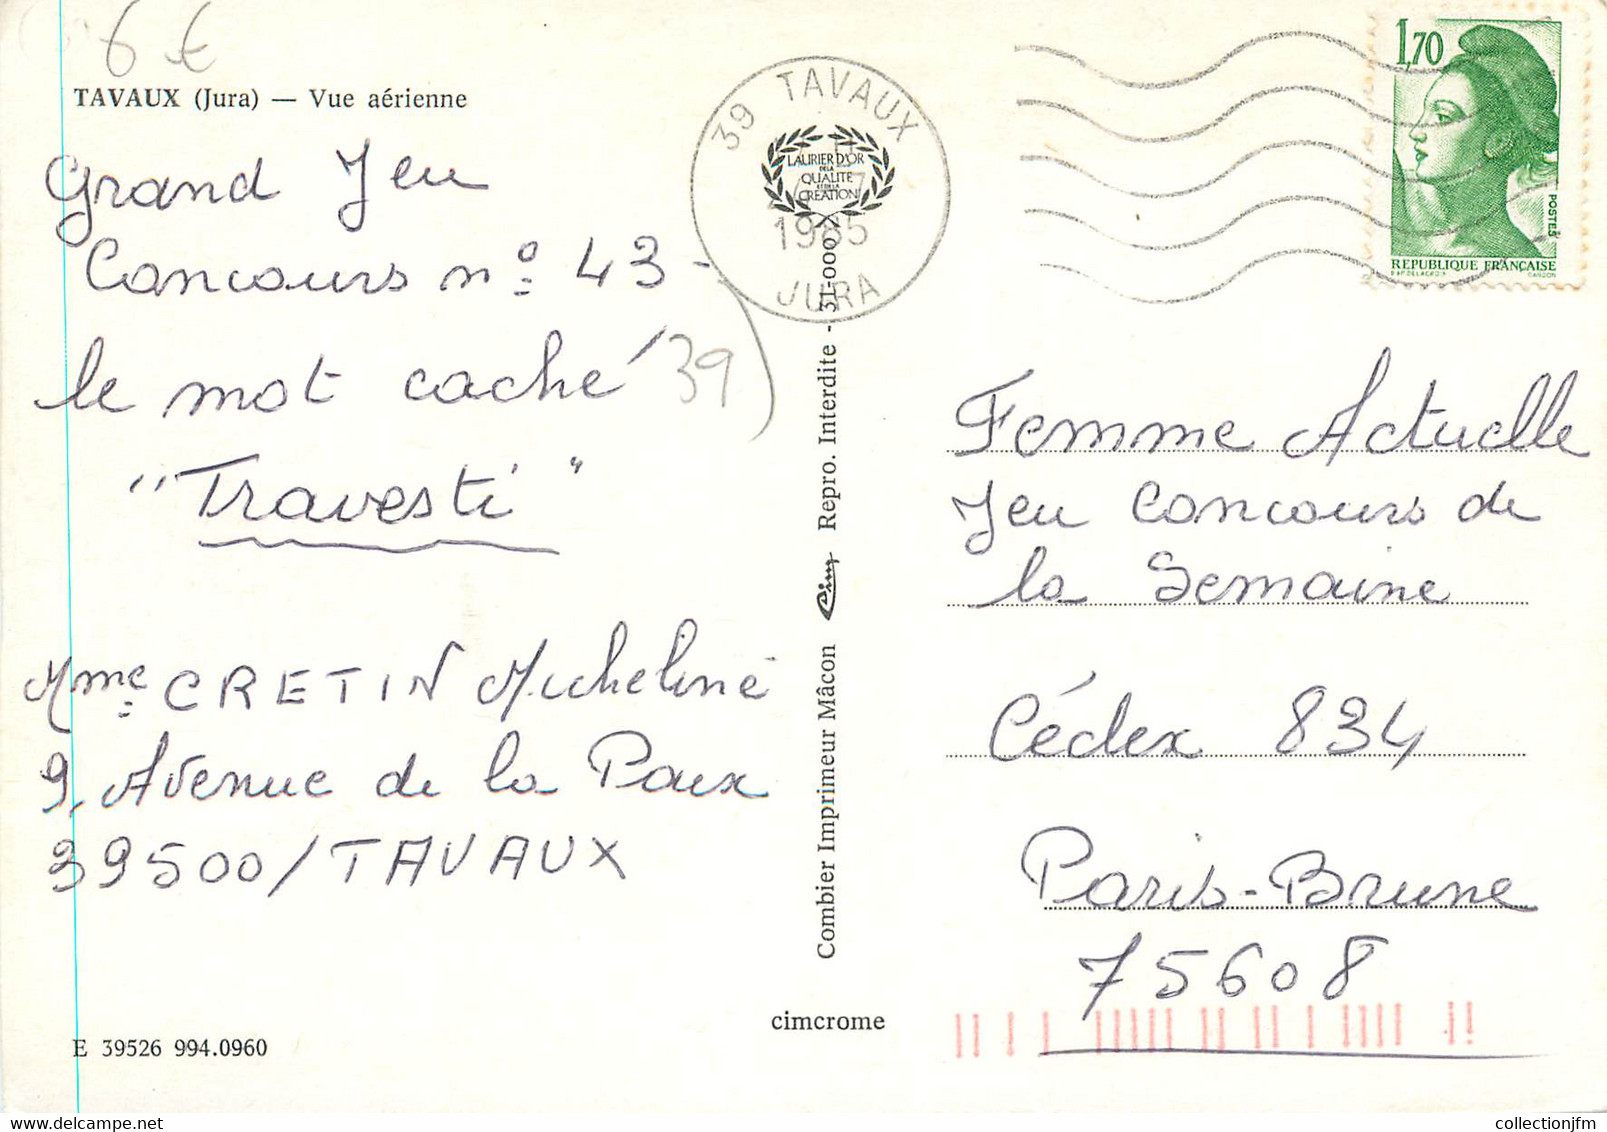 6 €
TAVAUX (Jura) — Vue aérienne
Grand Jeu
Concours n° 43 -
le mot caché
39
"Travesti"
Mme CRETIN Micheline
9, Avenue de la Paix
39500/TAVAUX
E 39526 994.0960
cimcrome
Combier Imprimeur Mâcon Cim Repro. Interdite - 31-000
39 TAVAUX
1985
JURA
LAURIER D'OR
DE LA
QUALITE
ET DE LA
CREATION
1,70
POSTES
REPUBLIQUE FRANÇAISE
Femme Actuelle
Jeu Concours de
la Semaine
Cédex 834
Paris-Brune
75608
collectionjfm